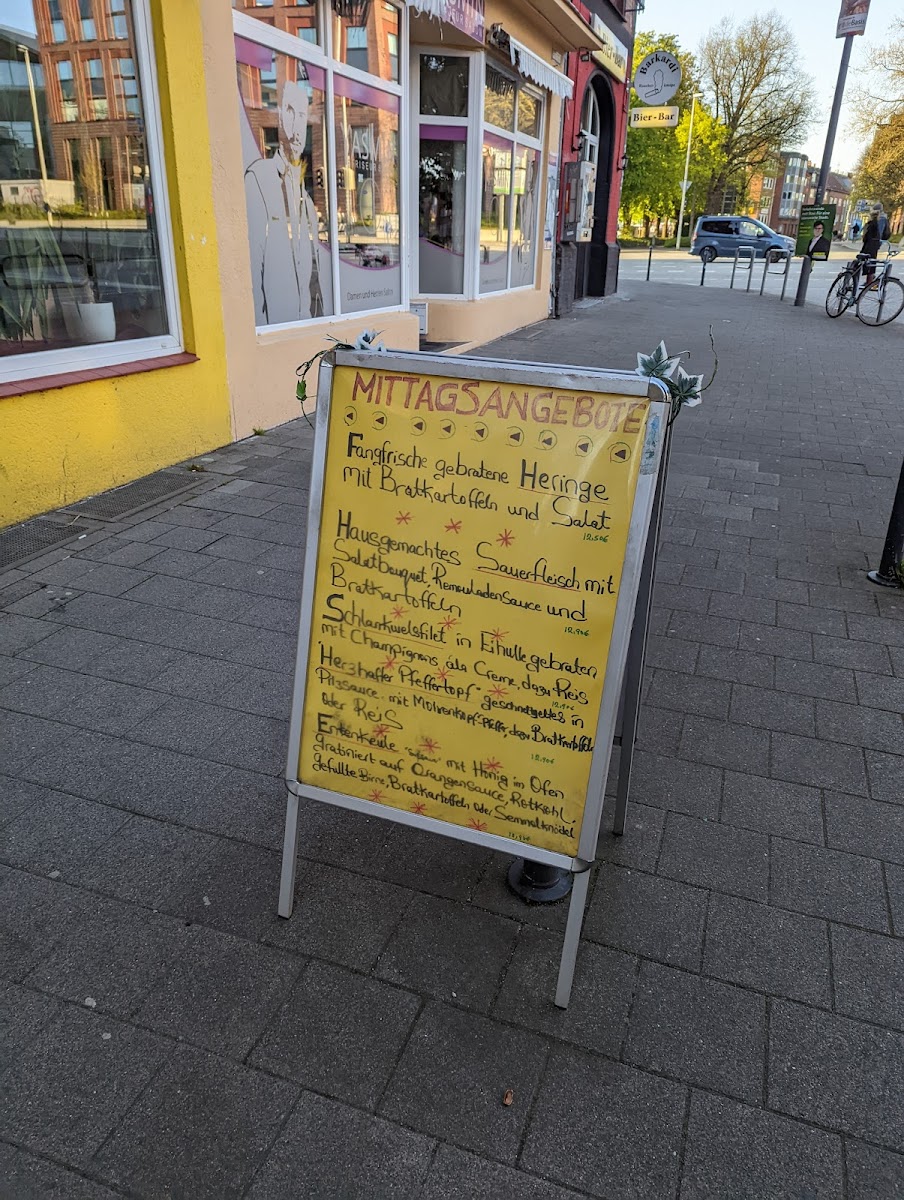 Barkardi
Bier-Bar
Damen und Herren Salon
MITTAGSANGEBOTE
Fangfrische gebratene Heringe
mit Bratkartoffeln und Salat
12,50€
Hausgemachtes Sauerfleisch mit
Salatbouquet, RemouladenSauce und
Bratkartoffeln
12,90€
Schlankwelsfilet in Eihülle gebraten
mit Champignons á la Creme, dazu Reis
Herzhafter Pfeffertopf geschnetzeltes in
Pilzsauce mit Möhrenkopf-Pfeffer, dazu Bratkartoffeln
oder Reis
Entenkeule mit Honig im Ofen
gratiniert auf Orangensauce, Rotkohl,
gefüllte Birne, Bratkartoffeln oder Semmelknödel